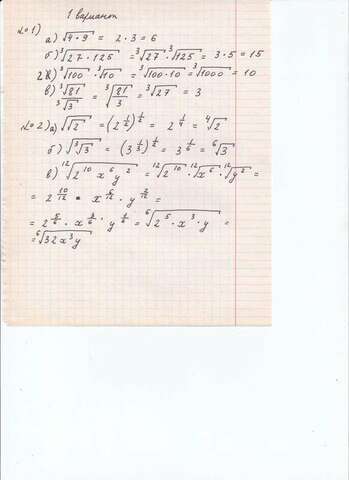 1 вариант
№1)
а) √(4·9) = 2·3 = 6
б) ³√(27·125) = ³√27 · ³√125 = 3·5 = 15
2К) ³√100 · ³√10 = ³√(100·10) = ³√1000 = 10
в) ³√81 / ³√3 = ³√(81/3) = ³√27 = 3
№2) а) √√2 = (2^(1/2))^(1/2) = 2^(1/4) = ⁴√2
б) √(³√3) = (3^(1/3))^(1/2) = 3^(1/6) = ⁶√3
в) ¹²√(2¹⁰ x⁶ y²) = ¹²√2¹⁰ · ¹²√x⁶ · ¹²√y² =
= 2^(10/12) · x^(6/12) · y^(2/12) =
= 2^(5/6) · x^(3/6) · y^(1/6) = ⁶√(2⁵ · x³ · y) =
= ⁶√(32x³y)